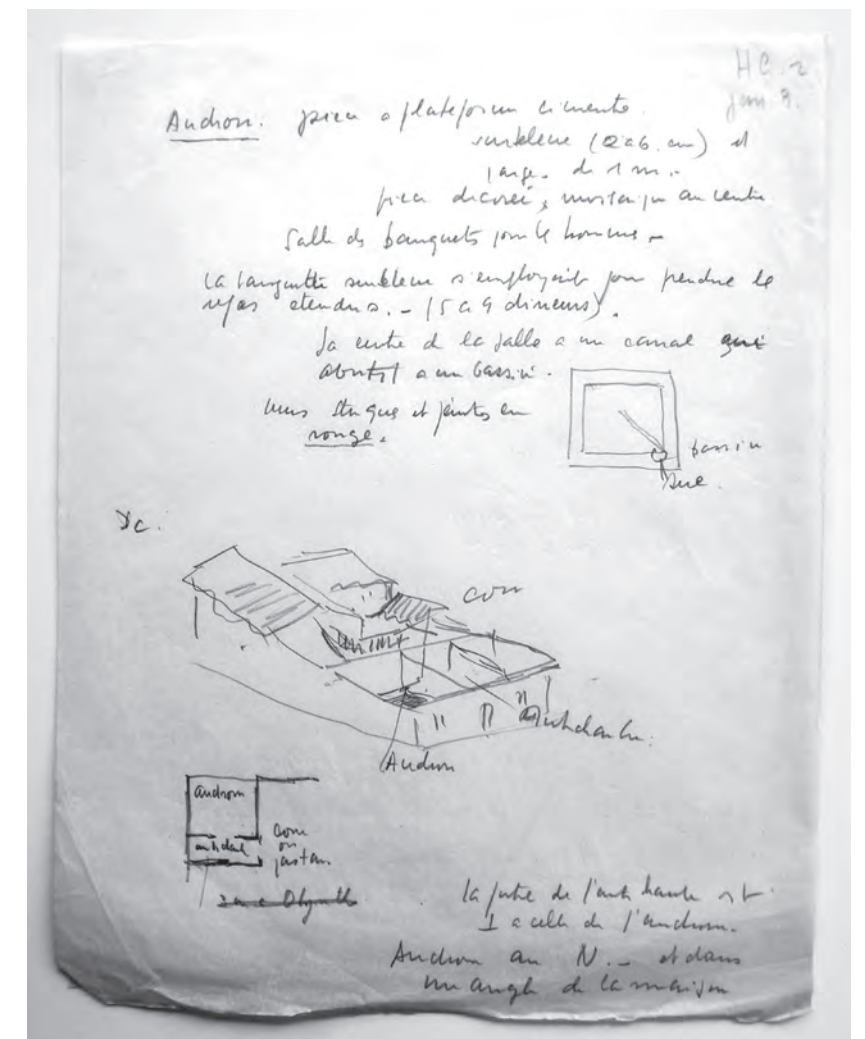 HC. 2
jan. 8.
Andron. piece a plateforme cimente
surelevee (2 a 6. cm) et
large. de 1 m.-
piece decoree, mosaique au centre
Salle de banquets pour le hommes -
La banquette surelevee s'employait pour prendre le
repas etendus. - (5 a 9 dineurs).
Le centre de la salle a un canal qui
aboutit a un bassin.
murs stuques et peintes en
rouge.
bassin
rue.
cour
Antichambre.
Andron
andron
antichamb
cour
ou
pastas.
la porte de l'antichambre est
⊥ a celle de l'andron.
Andron au N. - et dans
un angle de la maison